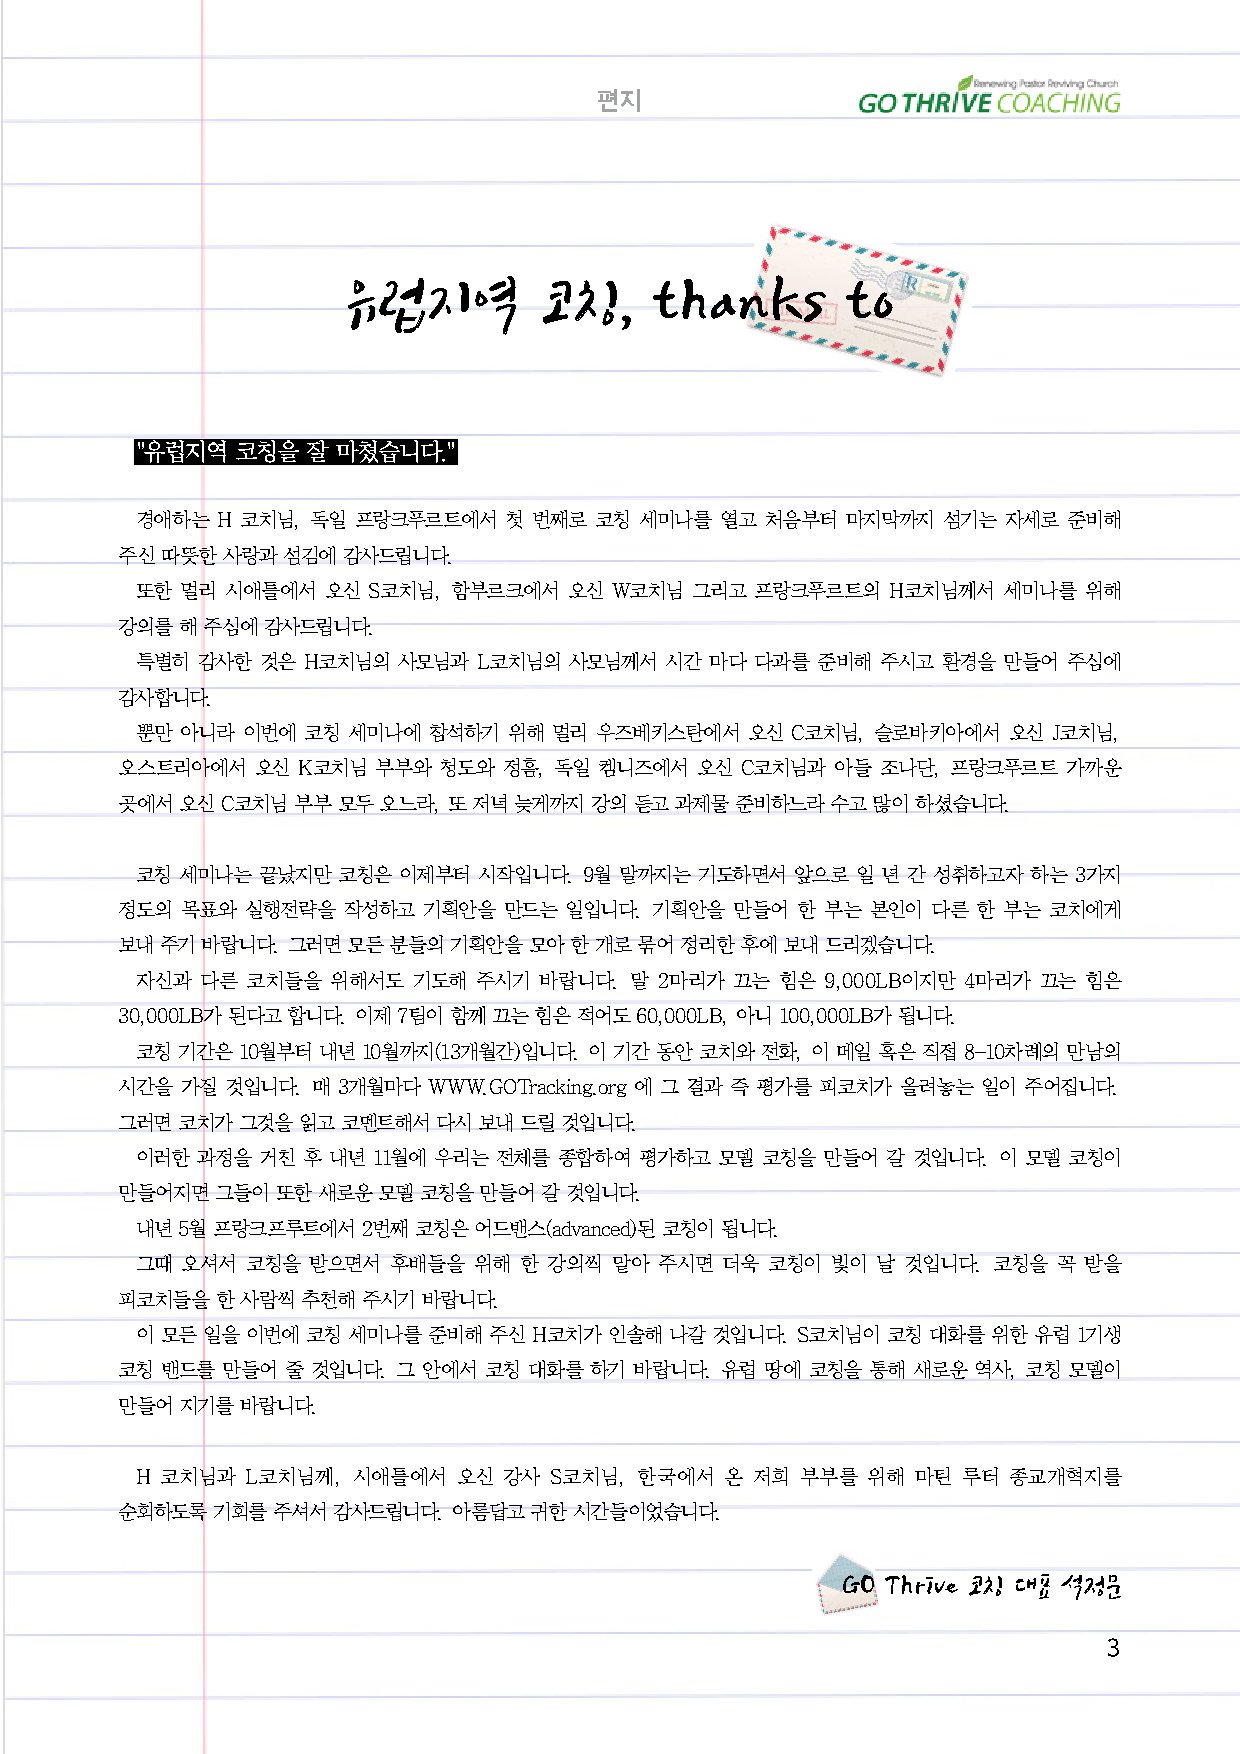 편지
Renewing Pastor Reviving Church
GO THRIVE COACHING
유럽지역 코칭, thanks to
"유럽지역 코칭을 잘 마쳤습니다."
경애하는 H 코치님, 독일 프랑크푸르트에서 첫 번째로 코칭 세미나를 열고 처음부터 마지막까지 섬기는 자세로 준비해
주신 따뜻한 사랑과 섬김에 감사드립니다.
또한 멀리 시애틀에서 오신 S코치님, 함부르크에서 오신 W코치님 그리고 프랑크푸르트의 H코치님께서 세미나를 위해
강의를 해 주심에 감사드립니다.
특별히 감사한 것은 H코치님의 사모님과 L코치님의 사모님께서 시간 마다 다과를 준비해 주시고 환경을 만들어 주심에
감사합니다.
뿐만 아니라 이번에 코칭 세미나에 참석하기 위해 멀리 우즈베키스탄에서 오신 C코치님, 슬로바키아에서 오신 J코치님,
오스트리아에서 오신 K코치님 부부와 청도와 정흠, 독일 켐니즈에서 오신 C코치님과 아들 조나단, 프랑크푸르트 가까운
곳에서 오신 C코치님 부부 모두 오느라, 또 저녁 늦게까지 강의 듣고 과제물 준비하느라 수고 많이 하셨습니다.
코칭 세미나는 끝났지만 코칭은 이제부터 시작입니다. 9월 말까지는 기도하면서 앞으로 일 년 간 성취하고자 하는 3가지
정도의 목표와 실행전략을 작성하고 기획안을 만드는 일입니다. 기획안을 만들어 한 부는 본인이 다른 한 부는 코치에게
보내 주기 바랍니다. 그러면 모든 분들의 기획안을 모아 한 개로 묶어 정리한 후에 보내 드리겠습니다.
자신과 다른 코치들을 위해서도 기도해 주시기 바랍니다. 말 2마리가 끄는 힘은 9,000LB이지만 4마리가 끄는 힘은
30,000LB가 된다고 합니다. 이제 7팀이 함께 끄는 힘은 적어도 60,000LB, 아니 100,000LB가 됩니다.
코칭 기간은 10월부터 내년 10월까지(13개월간)입니다. 이 기간 동안 코치와 전화, 이 메일 혹은 직접 8-10차례의 만남의
시간을 가질 것입니다. 매 3개월마다 WWW.GOTracking.org 에 그 결과 즉 평가를 피코치가 올려놓는 일이 주어집니다.
그러면 코치가 그것을 읽고 코멘트해서 다시 보내 드릴 것입니다.
이러한 과정을 거친 후 내년 11월에 우리는 전체를 종합하여 평가하고 모델 코칭을 만들어 갈 것입니다. 이 모델 코칭이
만들어지면 그들이 또한 새로운 모델 코칭을 만들어 갈 것입니다.
내년 5월 프랑크프루트에서 2번째 코칭은 어드밴스(advanced)된 코칭이 됩니다.
그때 오셔서 코칭을 받으면서 후배들을 위해 한 강의씩 맡아 주시면 더욱 코칭이 빛이 날 것입니다. 코칭을 꼭 받을
피코치들을 한 사람씩 추천해 주시기 바랍니다.
이 모든 일을 이번에 코칭 세미나를 준비해 주신 H코치가 인솔해 나갈 것입니다. S코치님이 코칭 대화를 위한 유럽 1기생
코칭 밴드를 만들어 줄 것입니다. 그 안에서 코칭 대화를 하기 바랍니다. 유럽 땅에 코칭을 통해 새로운 역사, 코칭 모델이
만들어 지기를 바랍니다.
H 코치님과 L코치님께, 시애틀에서 오신 강사 S코치님, 한국에서 온 저희 부부를 위해 마틴 루터 종교개혁지를
순회하도록 기회를 주셔서 감사드립니다. 아름답고 귀한 시간들이었습니다.
GO Thrive 코칭 대표 석정문
3